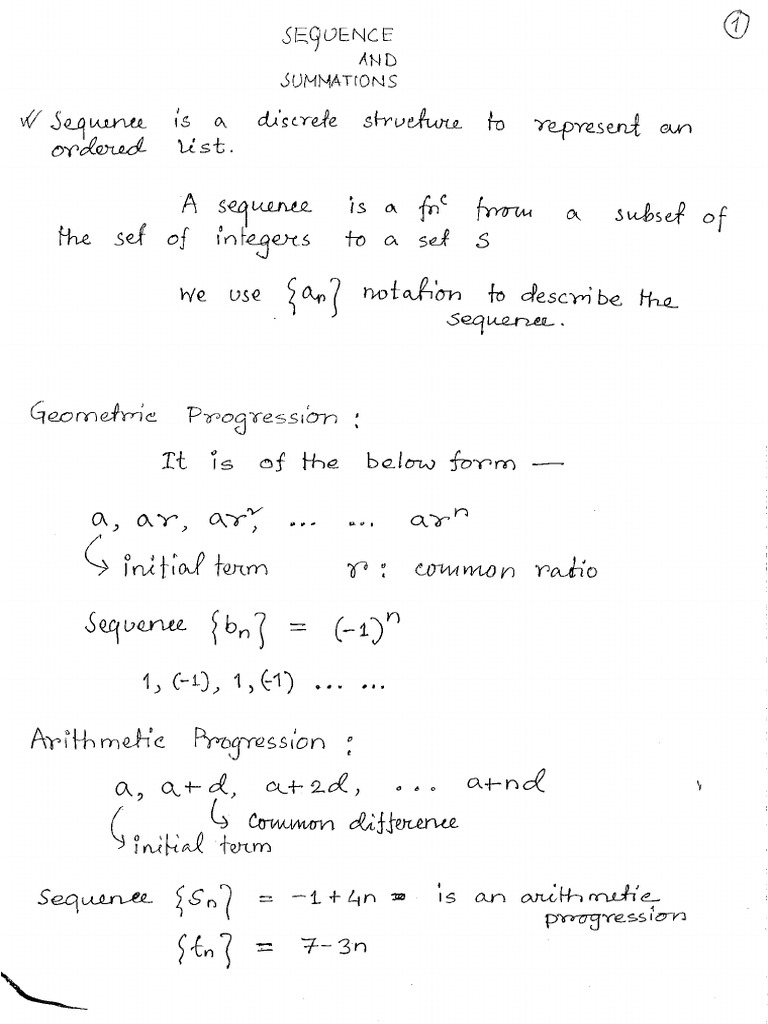 ①
SEQUENCE
AND
SUMMATIONS
✓ Sequence is a discrete structure to represent an
ordered list.
A sequence is a fnᶜ from a subset of
the set of integers to a set S
We use {aₙ} notation to describe the
sequence.
Geometric Progression :
It is of the below form —
a, ar, ar², ... ... arⁿ
↳ initial term r : common ratio
Sequence {bₙ} = (-1)ⁿ
1, (-1), 1, (-1) ... ...
Arithmetic Progression :
a, a+d, a+2d, ... a+nd
↳ common difference
↳ initial term
Sequence {Sₙ} = -1+4n = is an arithmetic
progression
{tₙ} = 7-3n